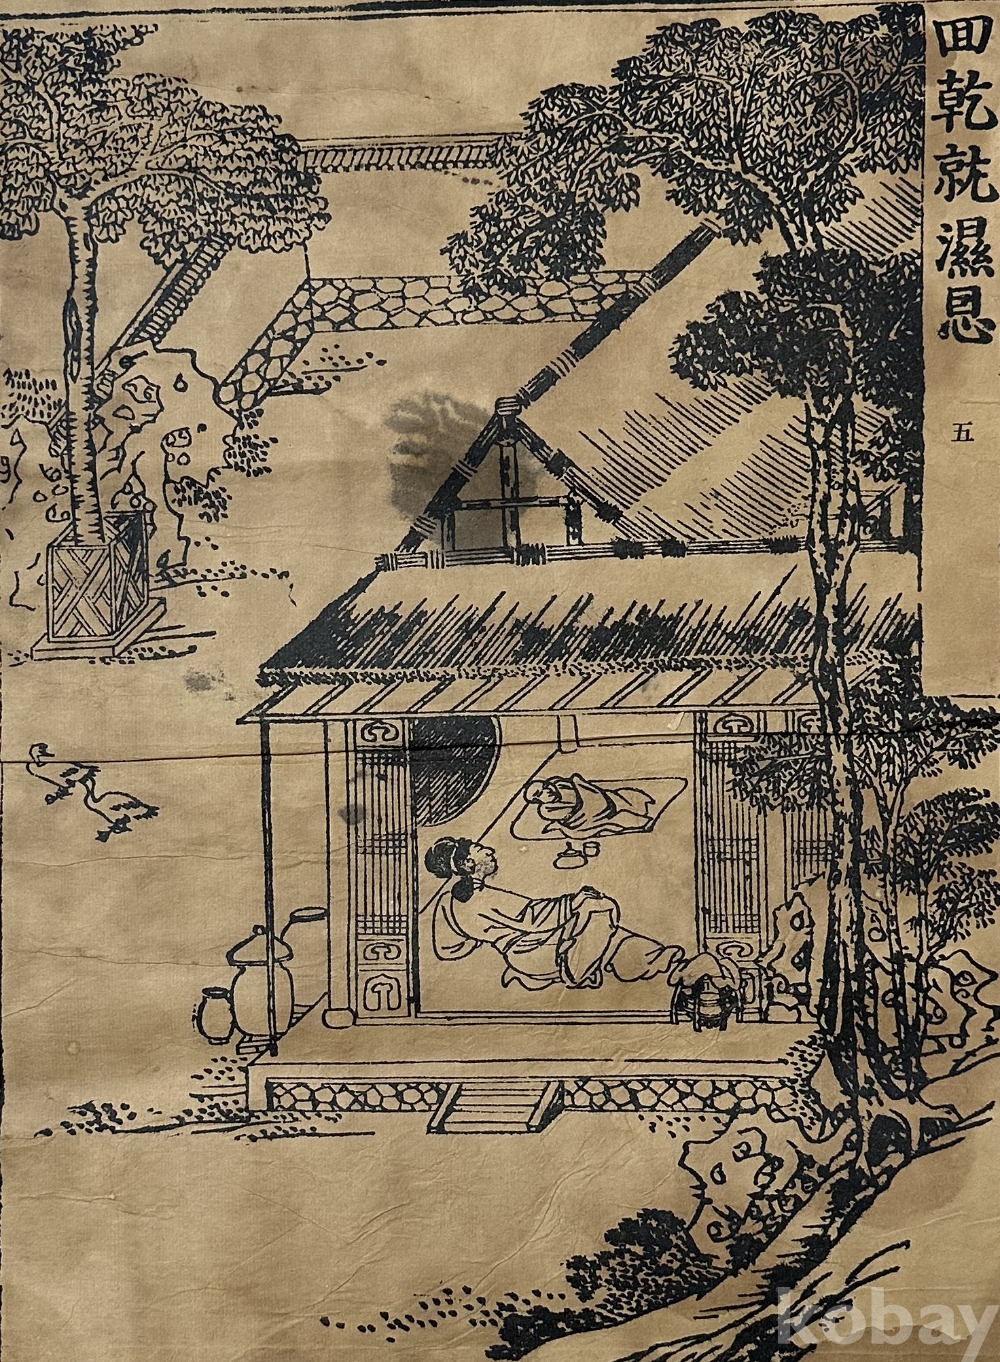 囬乾就濕恩
五
kobay